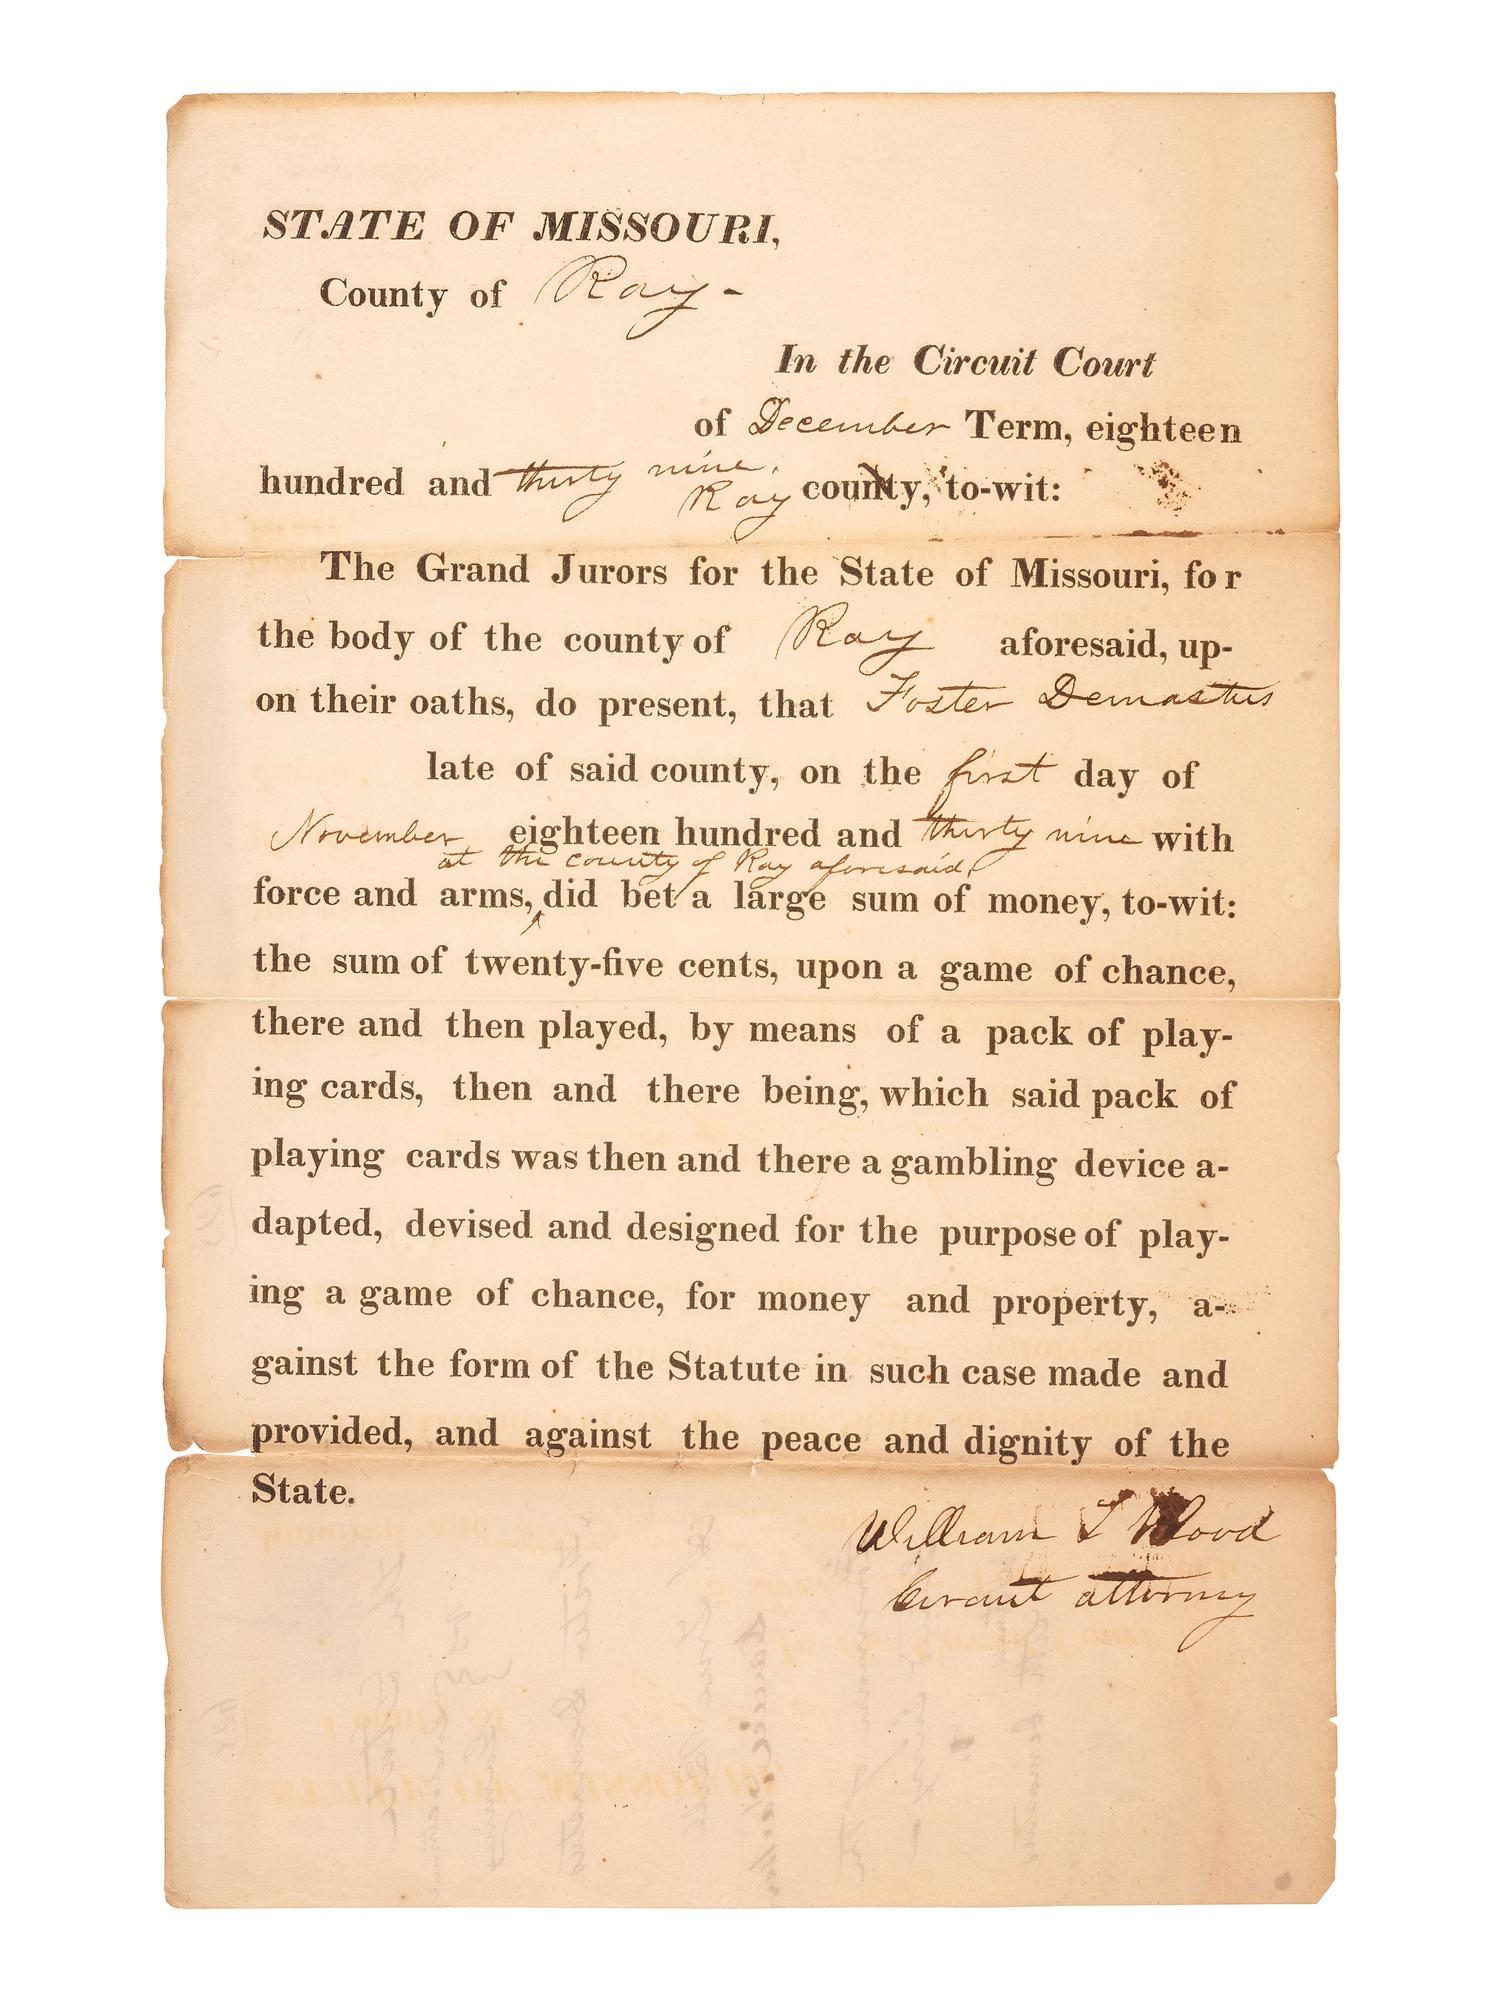 STATE OF MISSOURI,
County of Ray -
In the Circuit Court
of December Term, eighteen
hundred and thirty nine.
Ray county, to-wit:
The Grand Jurors for the State of Missouri, for
the body of the county of Ray aforesaid, up-
on their oaths, do present, that Foster Demastus
late of said county, on the first day of
November eighteen hundred and thirty nine with
at the county of Ray aforesaid,
force and arms, did bet a large sum of money, to-wit:
the sum of twenty-five cents, upon a game of chance,
there and then played, by means of a pack of play-
ing cards, then and there being, which said pack of
playing cards was then and there a gambling device a-
dapted, devised and designed for the purpose of play-
ing a game of chance, for money and property, a-
gainst the form of the Statute in such case made and
provided, and against the peace and dignity of the
State.
William T Wood
Circuit attorney